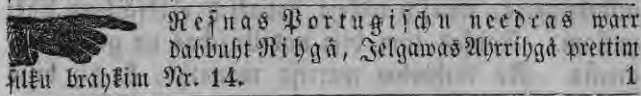 Resnas Portugiſchu needras warr
dabbuht Rihgâ, Jelgawas Ahrrihgâ prettim
ſilku' brahķim Nr. 14. 1